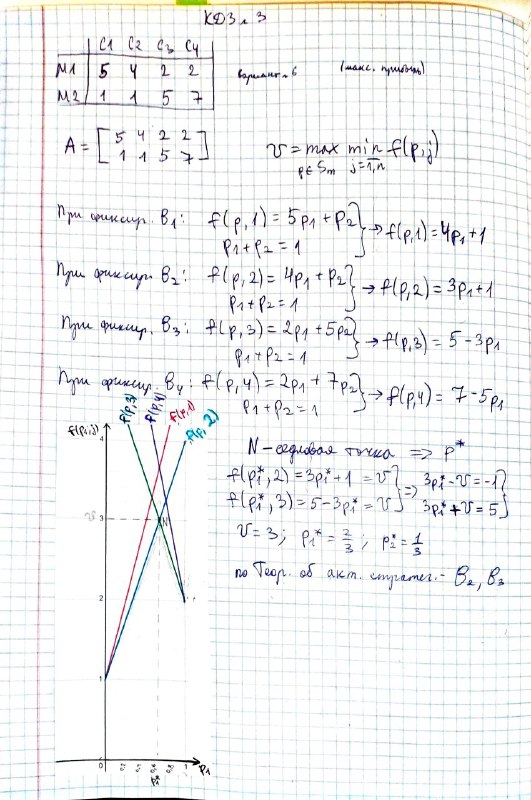 КДЗ № 3
C1 C2 C3 C4
M1 5 4 2 2
M2 1 1 5 7
вариант 6 (макс. прибыль)
A = [ 5 4 2 2
1 1 5 7 ]
v = max min f(p,j)
p∈Sm j=1,n
При фиксир. B1: f(p,1) = 5p1 + p2
p1 + p2 = 1 } → f(p,1) = 4p1 + 1
При фиксир. B2: f(p,2) = 4p1 + p2
p1 + p2 = 1 } → f(p,2) = 3p1 + 1
При фиксир. B3: f(p,3) = 2p1 + 5p2
p1 + p2 = 1 } → f(p,3) = 5 - 3p1
При фиксир. B4: f(p,4) = 2p1 + 7p2
p1 + p2 = 1 } → f(p,4) = 7 - 5p1
f(p,3) f(p,4) f(p,1) f(p,2)
f(p,j)
4
v
3
N
2
1
0
0,2 0,4 0,6 0,8 1 p1
p1*
N - седловая точка => p*
f(p1*,2) = 3p1* + 1 = v
f(p1*,3) = 5 - 3p1* = v } => 3p1* - v = -1
3p1* + v = 5 }
v = 3; p1* = 2/3; p2* = 1/3
по теор. об акт. стратег. - B2, B3